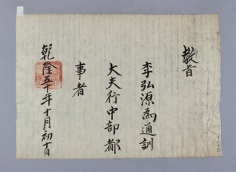 教旨
李弘源爲通訓
大夫行中部都
事者
乾隆五十年十月初十日